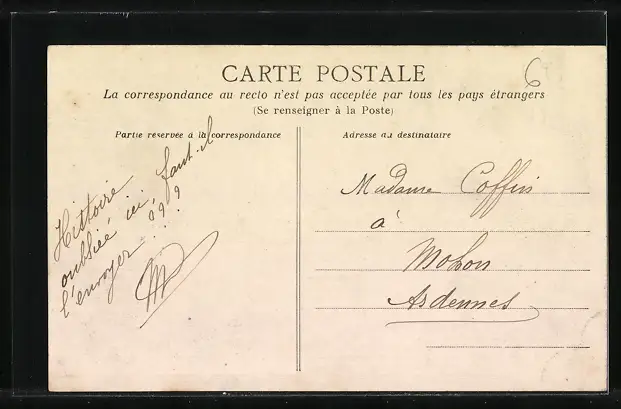 6
CARTE POSTALE
La correspondance au recto n'est pas acceptée par tous les pays étrangers
(Se renseigner à la Poste)
Partie réservée à la correspondance
Histoire
oubliée ici, faut-il
l'envoyer ???
Adresse du destinataire
Madame Coffin
à
Mohon
Ardennes